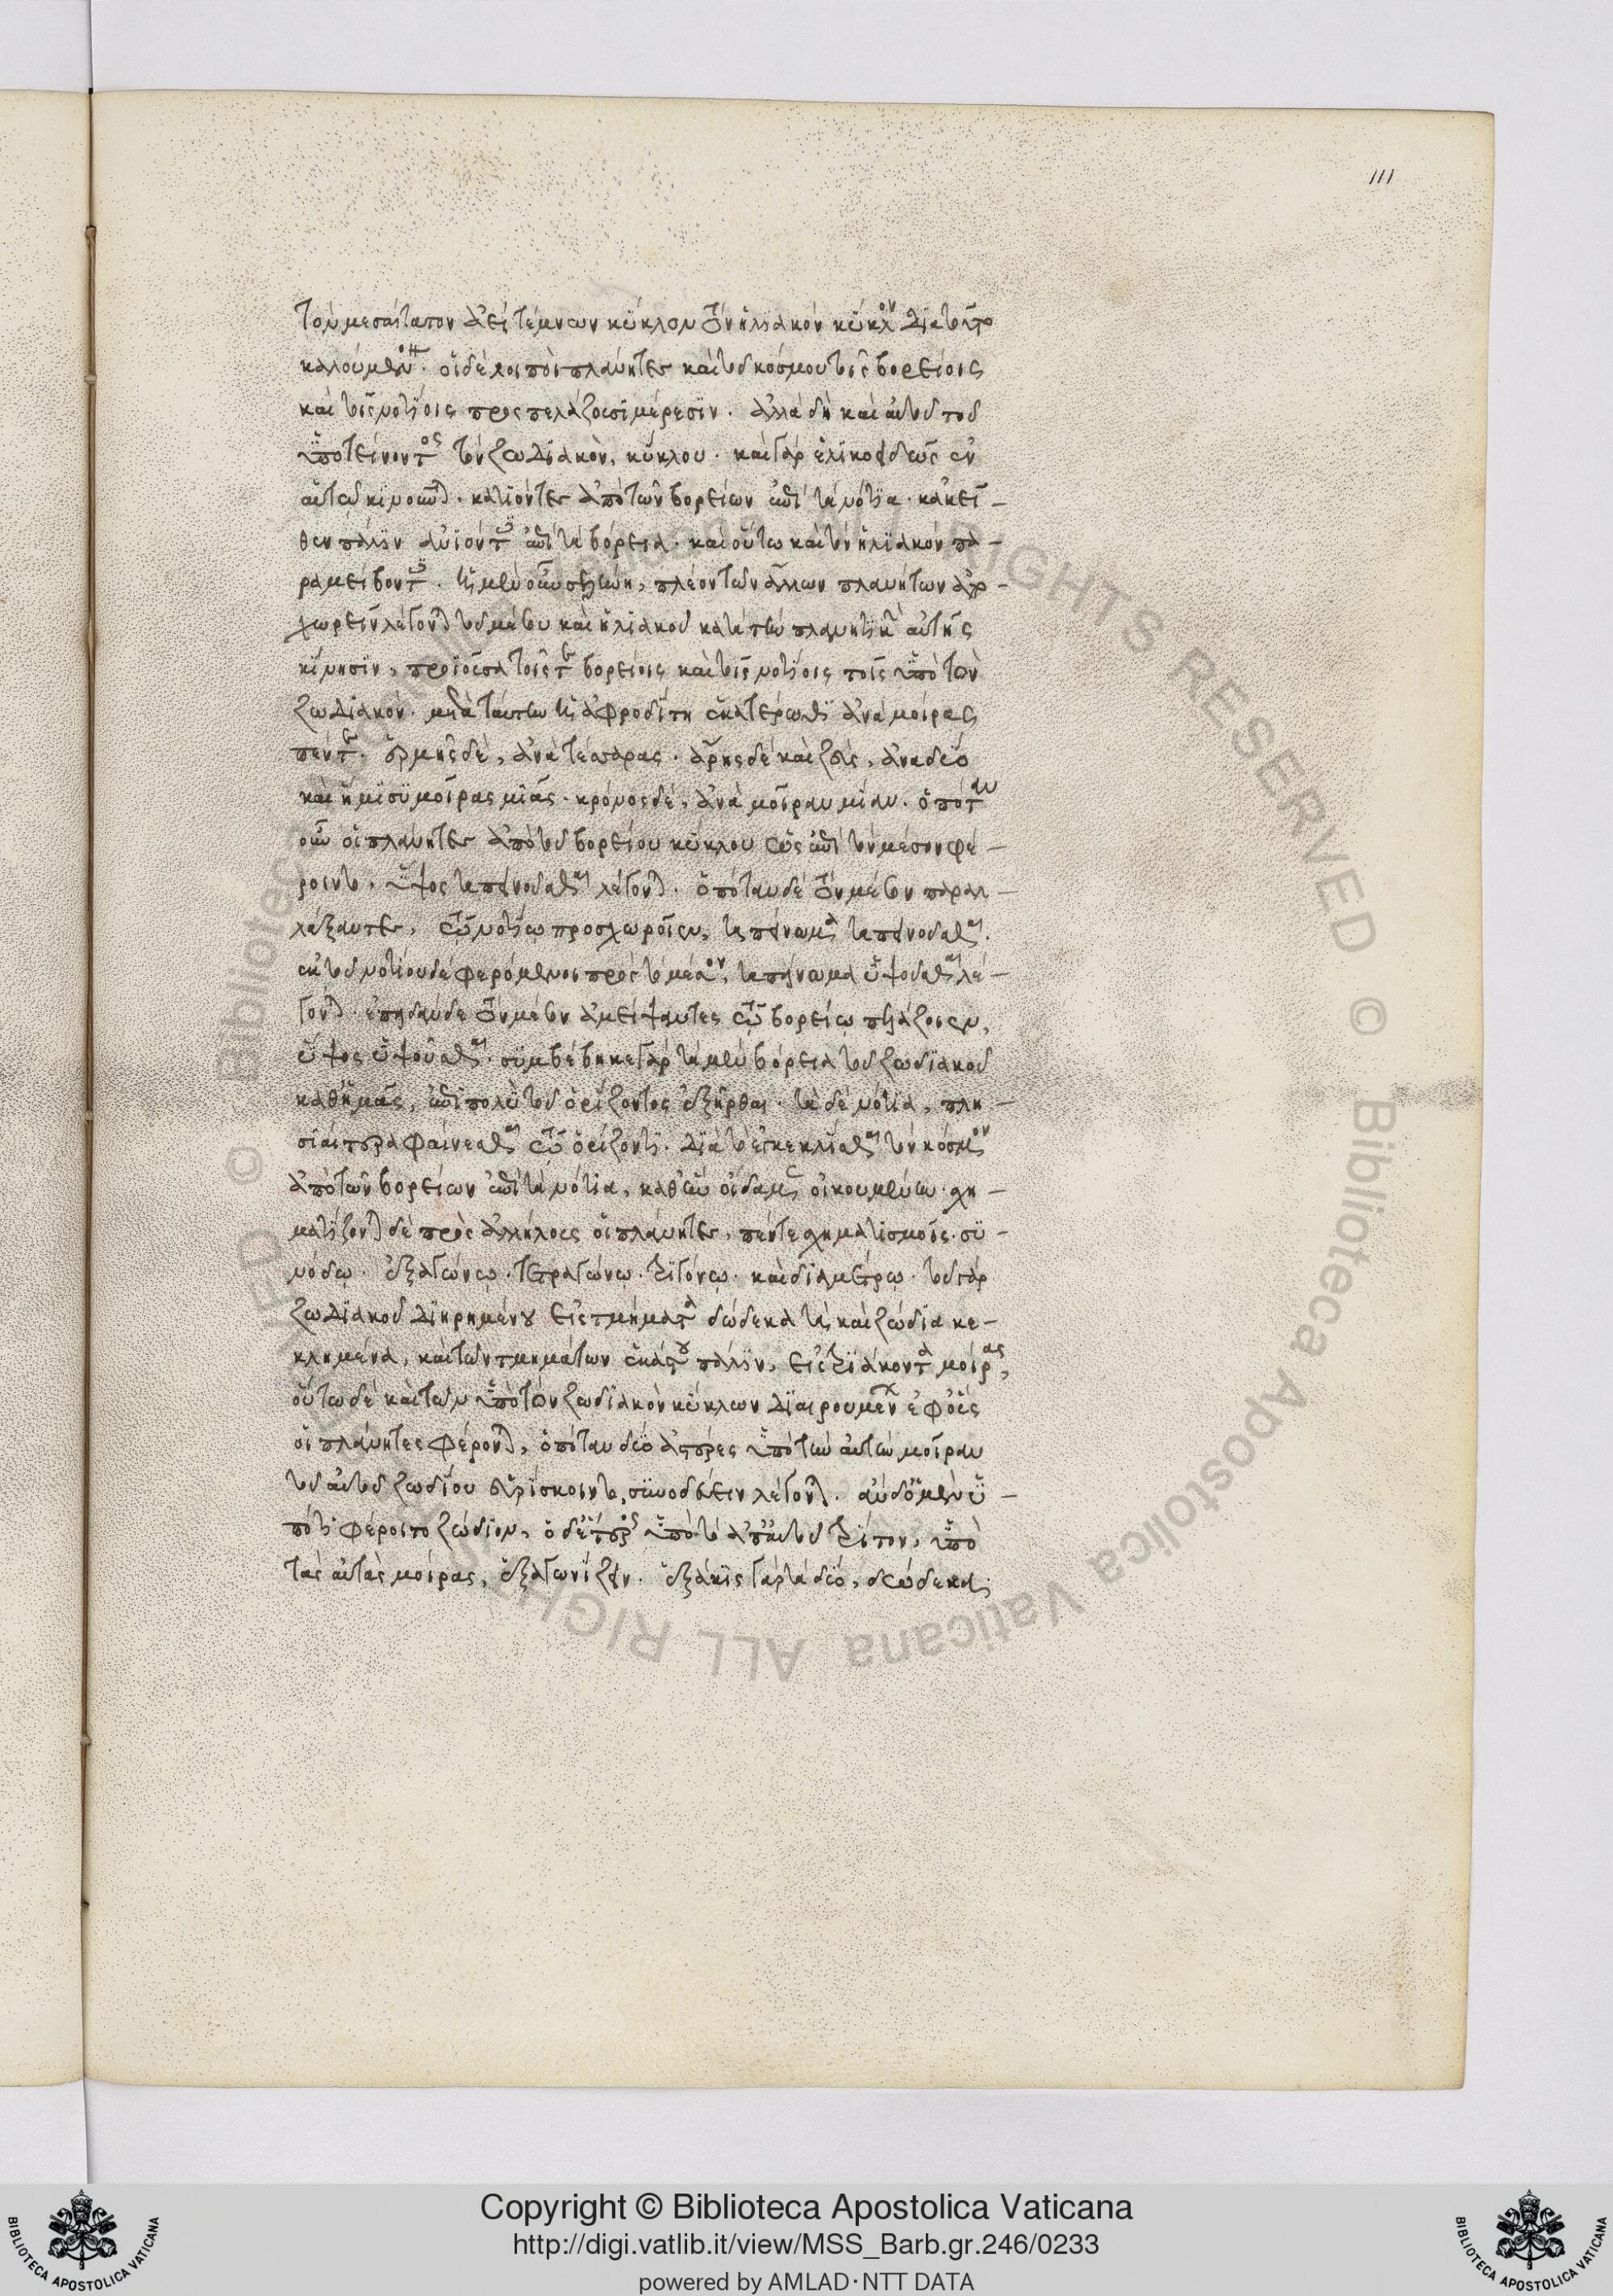 111
τὸν μεσαίτατον ἀεὶ τέμνων κύκλον τὸν ἡλιακὸν κύκλον διατοῦτο
καλούμενον. οἱ δὲ λοιποὶ πλάνητες καὶ τοῦ κόσμου τοῖς βορείοις
καὶ τοῖς νοτίοις προσπελάζουσι μέρεσιν. ἀλλὰ δὴ καὶ αὐτοῦ τοῦ
ὑποτείνοντος τὸν ζωδιακὸν, κύκλου. καὶ γὰρ ἑλικοειδῶς ἐν
αὐτῶ κινοῦνται. κατιόντες ἀπὸ τῶν βορείων ἐπὶ τὰ νότια. κἀκεῖ-
θεν πάλιν ἀνιόντες ἐπὶ τὰ βόρεια. καὶ οὕτω καὶ τὸν ἡλιακὸν πα-
ραμείβοντες. ἡ μὲν οὖν σελήνη, πλέον τῶν ἄλλων πλανήτων ἀπο-
χωρεῖν λέγονται τοῦ μέσου καὶ ἡλιακοῦ κατὰ τὴν πλανητικὴν αὐτῆς
κίνησιν, προϊοῦσα τοῖς τε βορείοις καὶ τοῖς νοτίοις τοῖς ὑπὸ τὸν
ζωδιακόν. μετὰ ταύτην ἡ ἀφροδίτη ἑκατέρωθι ἀνὰ μοίρας
πέντε. ἑρμῆς δὲ, ἀνὰ τέσσαρας. ἄρης δὲ καὶ ζεὺς, ἀνὰ δύο
καὶ ἥμισυ μοίρας μιᾶς. κρόνος δὲ, ἀνὰ μοῖραν μίαν. ὁπόταν
οὖν οἱ πλάνητες ἀπὸ τοῦ βορείου κύκλου ὡς ἐπὶ τὸν μέσον φέ-
ροιντο, ὕψος ταπεινοῦσθαι λέγονται. ὁπόταν δὲ τὸν μέσον παραλ-
λάξαντες, τῶ νοτίω προσχωροῖεν, ταπείνωμα ταπεινοῦσθαι.
ἐκ τοῦ νοτίου δὲ φερόμενοι πρὸς τὸ μέσον, ταπείνωμα ὑψοῦσθαι λέ-
γονται. ἐπειδὰν δὲ τὸν μέσον ἀμείψαντες τῶ βορείω πελάζοιεν,
ὕψος ὑψοῦσθαι. συμβέβηκε γὰρ τὰ μὲν βόρεια τοῦ ζωδιακοῦ
καθ' ἡμᾶς, ἐπιπολὺ τοῦ ὁρίζοντος ἐξῆρθαι. τὰ δὲ νότια, πλη-
σιαίτερα φαίνεσθαι τῶ ὁρίζοντι. διὰ τὸ ἐγκεκλίσθαι τὸν κόσμον
ἀπὸ τῶν βορείων ἐπὶ τὰ νότια, καθ' ἣν οἴδαμεν οἰκουμένην. σχη-
ματίζονται δὲ πρὸς ἀλλήλους οἱ πλάνητες, πέντε σχηματισμοῖς. συ-
νόδω. ἑξαγώνω. τετραγώνω. τριγόνω. καὶ διαμέτρω. τοῦ γὰρ
ζωδιακοῦ διηρημένου εἰς τμήματα δώδεκα τὰ καὶ ζώδια κε-
κλημένα, καὶ τῶν τμημάτων ἑκάστου πάλιν, εἰς τριάκοντα μοίρας,
οὕτω δὲ καὶ τῶν ὑπὸ τὸν ζωδιακὸν κύκλων διαιρουμένων ἐφ' οἷς
οἱ πλάνητες φέρονται, ὁπόταν δύο ἀστέρες ὑπὸ τὴν αὐτὴν μοῖραν
τοῦ αὐτοῦ ζωδίου εὑρίσκοιντο, συνοδεύειν λέγονται. ἂν δ' ὁ μὲν ὑ-
πό τι φέροιτο ζώδιον, ὁ δ' ἕτερος ὑπὸ τὸ ἀπ' αὐτοῦ τρίτον, ὑπὸ
τὰς αὐτὰς μοίρας, ἑξαγωνίζειν. ἑξάκις γὰρ τὰ δύο, δώδεκα.
Copyright © Biblioteca Apostolica Vaticana
http://digi.vatlib.it/view/MSS_Barb.gr.246/0233
powered by AMLAD·NTT DATA